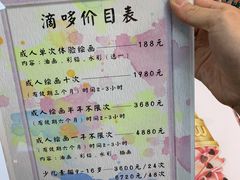 滴哆价目表
成人单次体验绘画 188元
内容：油画、彩铅、水彩（选一）
成人绘画十次 1980
（有效期三个月）时间2-3小时
成人绘画半年不限次 3680
（有效期六个月）时间2-3小时
成人绘画一年不限次 4880
（有效期一年）时间2-3小时
内容：油画、彩铅、水彩
少儿素描9-16岁 3600元/24次
6720元/48次